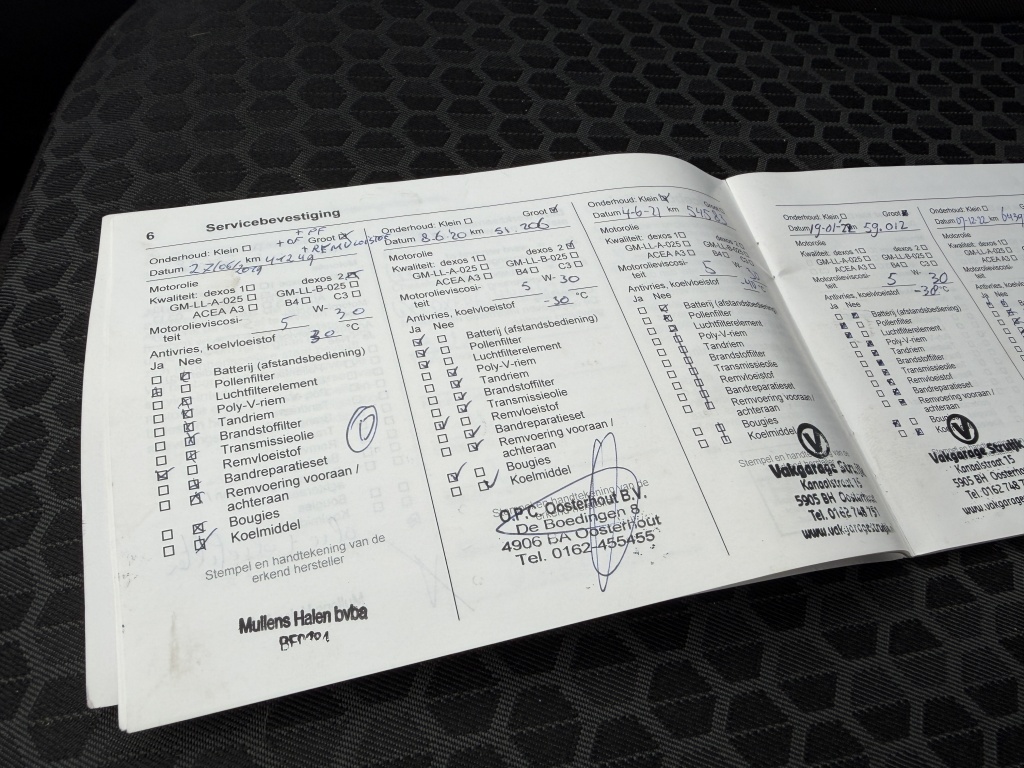 6 Servicebevestiging
+ PF
Onderhoud: Klein Groot
Datum km
Motorolie
Kwaliteit: dexos 1 dexos 2
GM-LL-A-025 GM-LL-B-025
ACEA A3 B4 C3
Motorolieviscosi- 5 W- 30
teit
Antivries, koelvloeistof 30 °C
Ja Nee
Batterij (afstandsbediening)
Pollenfilter
Luchtfilterelement
Poly-V-riem
Tandriem
Brandstoffilter
Transmissieolie
Remvloeistof
Bandreparatieset
Remvoering vooraan /
achteraan
Bougies
Koelmiddel
Stempel en handtekening van de
erkend hersteller
Mullens Halen bvba
Onderhoud: Klein Groot
Datum 8.6.20 km 51.206
Motorolie
Kwaliteit: dexos 1 dexos 2
GM-LL-A-025 GM-LL-B-025
ACEA A3 B4 C3
Motorolieviscosi- 5 W- 30
teit
Antivries, koelvloeistof -30 °C
Ja Nee
Batterij (afstandsbediening)
Pollenfilter
Luchtfilterelement
Poly-V-riem
Tandriem
Brandstoffilter
Transmissieolie
Remvloeistof
Bandreparatieset
Remvoering vooraan /
achteraan
Bougies
Koelmiddel
O.P.C. Oosterhout B.V.
De Boedingen 8
4906 BA Oosterhout
Tel. 0162-455455
Onderhoud: Klein
Datum 4-6-21 km
Motorolie
Kwaliteit: dexos 1 dexos 2
GM-LL-A-025
ACEA A3 B4
Motorolieviscosi- 5 W-
teit
Antivries, koelvloeistof
Ja Nee
Batterij (afstandsbedien
Pollenfilter
Luchtfilterelement
Poly-V-riem
Tandriem
Brandstoffilter
Transmissieolie
Remvloeistof
Bandreparatieset
Remvoering vooraan /
achteraan
Bougies
Koelmiddel
Stempel en handtekening
Vakgarage
Kanaalstraat 15
5905 BH
Tel. 0162
Onderhoud: Klein Groot
Datum km 59.012
Motorolie
Kwaliteit: dexos 1 dexos 2
GM-LL-A-025 GM-LL-B-025
ACEA A3 B4 C3
Motorolieviscosi- 5 30
teit
Antivries, koelvloeistof -30 °C
Ja Nee
Batterij (afstandsbediening)
Pollenfilter
Luchtfilterelement
Poly-V-riem
Tandriem
Brandstoffilter
Transmissieolie
Remvloeistof
Bandreparatieset
Remvoering vooraan /
achteraan
Vakgarage
Kanaalstraat 15
5905 BH
Tel. 0162
Onderhoud: Klein
Datum 07-12-22 km
Motorolie
Kwaliteit: dexos 1
GM-LL-A-025
ACEA A3
Motorolieviscosi-
teit
Antivries, koel
Ja Nee